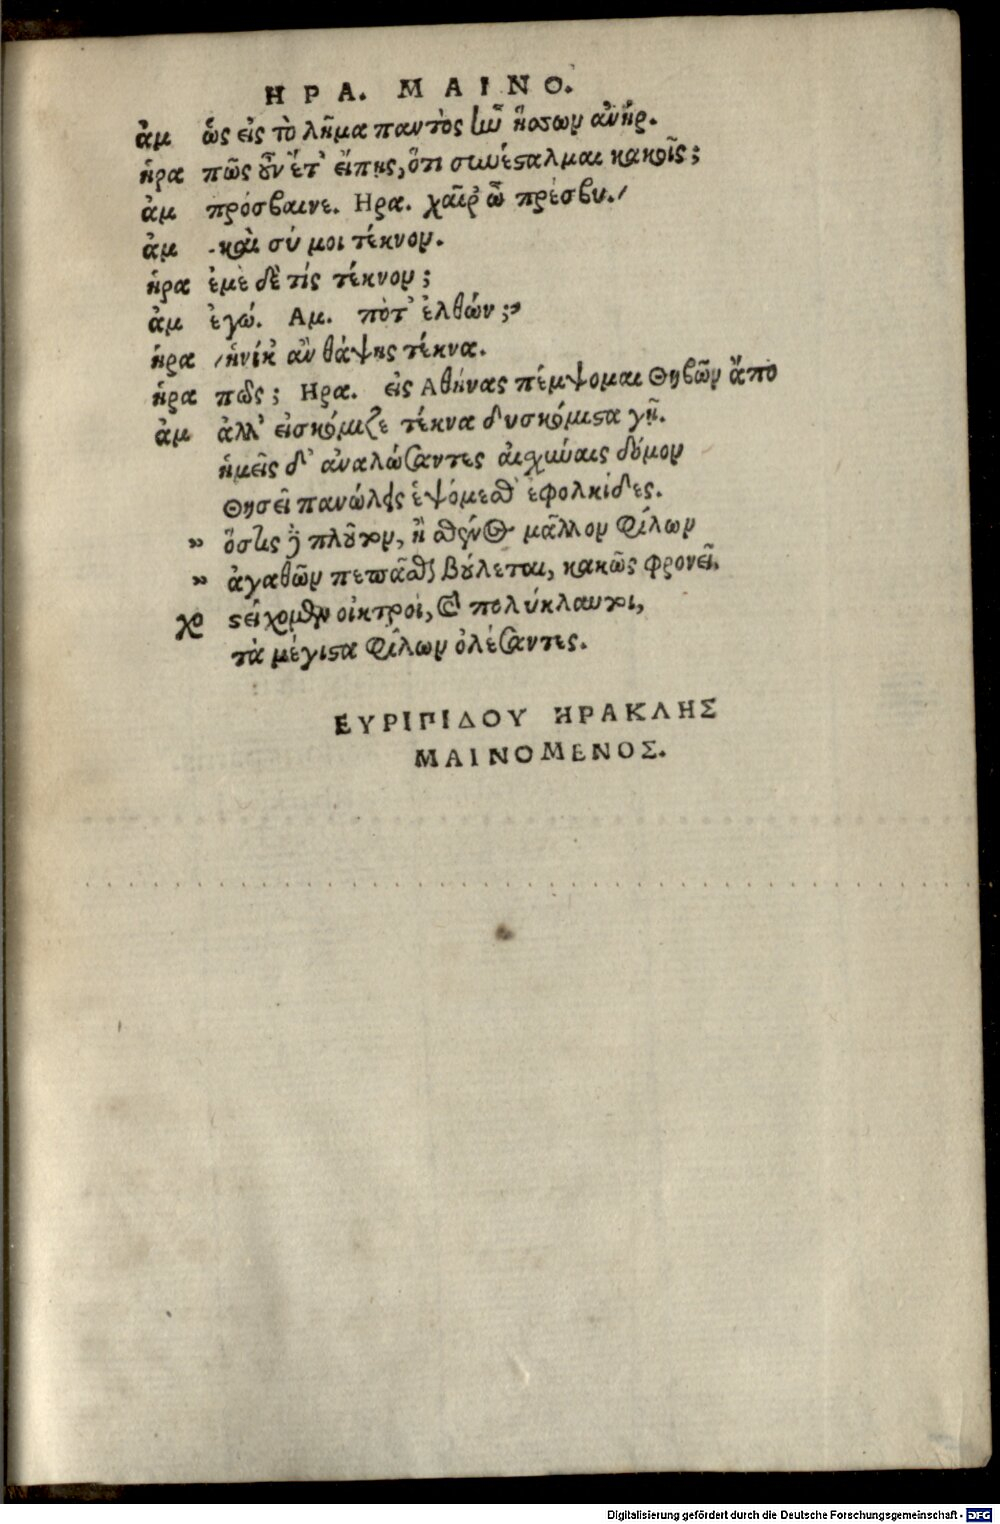 ΗΡΑ. ΜΑΙΝΟ.
ἀμ ὡς εἰς τὸ λῆμα παντὸς ἦν ἥσσων ἀνήρ.
ἡρα πῶς οὖν ἔτ' εἴπῃς, ὅτι συνέσταλμαι κακοῖς;
ἀμ πρόσβαινε. Ηρα. χαῖρ' ὦ πρέσβυ.
ἀμ καὶ σύ μοι τέκνον.
ἡρα ἐμὲ δὲ τίς τέκνον;
ἀμ ἐγώ. Αμ. πότ' ἐλθών;
ἡρα ἡνίκ' ἂν θάψῃς τέκνα.
ἡρα πῶς; Ηρα. εἰς Αθήνας πέμψομαι Θηβῶν ἄπο
ἀμ ἀλλ' εἰσκόμιζε τέκνα δυσκόμιστα γῇ.
ἡμεῖς δ' ἀναλώσαντες αἰσχύναις δόμον
Θησεῖ πανώλεις ἑψόμεσθ' ἐφολκίδες.
» ὅστις δὲ πλοῦτον, ἢ σθένος μᾶλλον φίλων
» ἀγαθῶν πεπᾶσθαι βούλεται, κακῶς φρονεῖ.
χο στείχομεν οἰκτροὶ, καὶ πολύκλαυτοι,
τὰ μέγιστα φίλων ὀλέσαντες.
ΕΥΡΙΠΙΔΟΥ ΗΡΑΚΛΗΣ
ΜΑΙΝΟΜΕΝΟΣ.
Digitalisierung gefördert durch die Deutsche Forschungsgemeinschaft - DFG